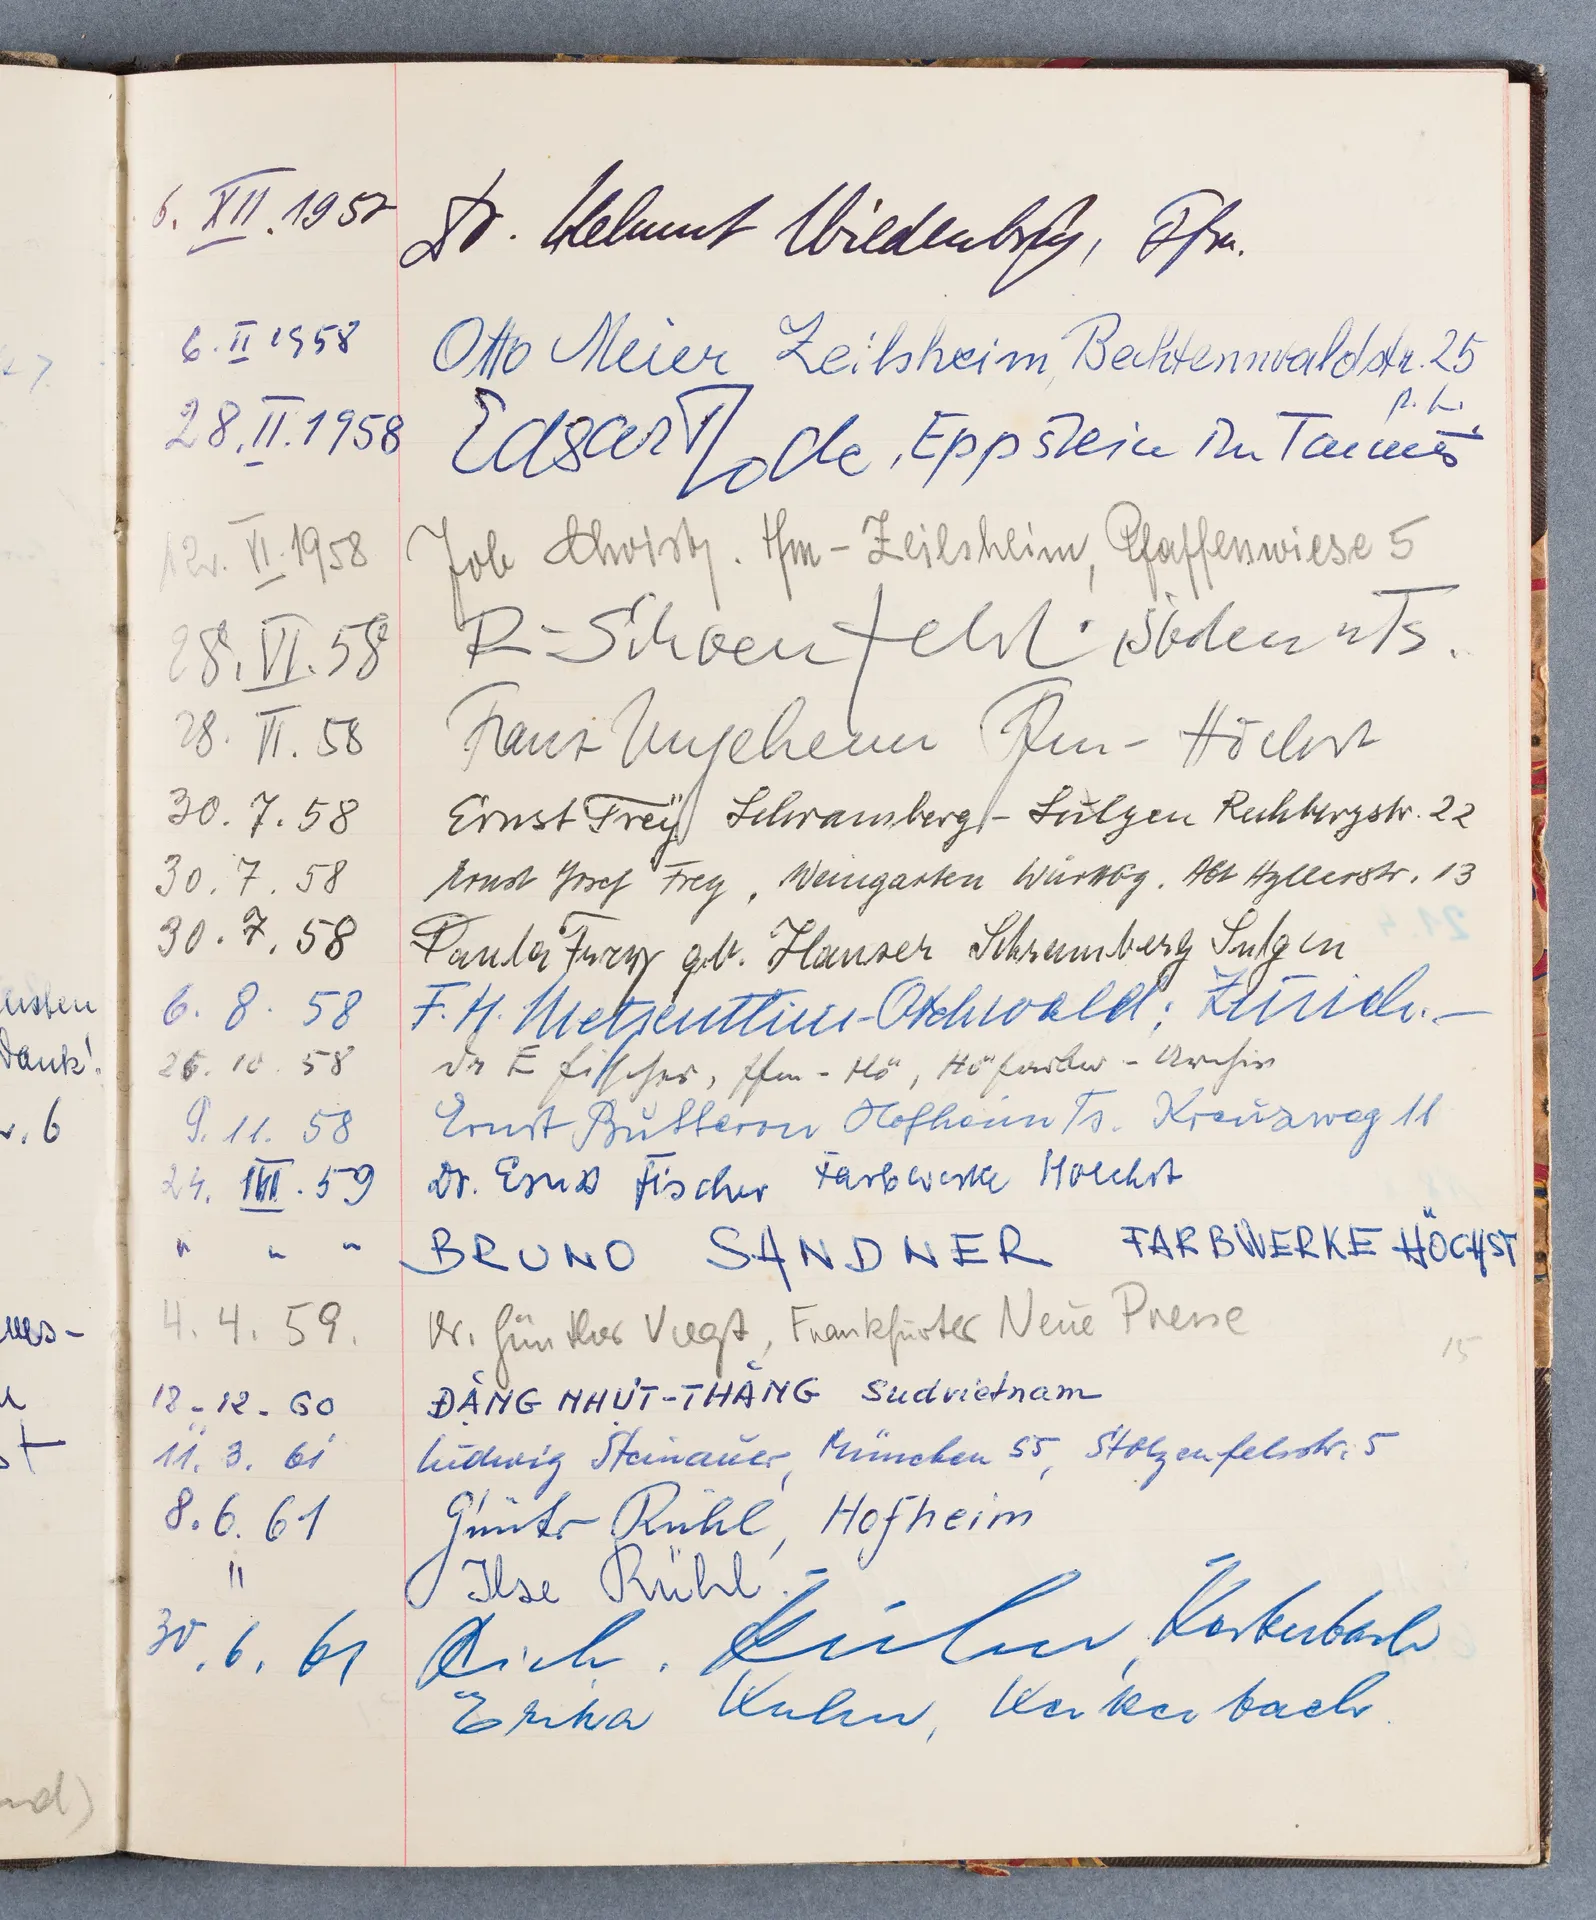 6. XII. 1957 Dr. Helmut Ffm.
6. II 1958 Otto Meier Zeilsheim, Bechtenwaldstr. 25
p. h.
28. II. 1958 Edgar Eppstein im Taunus
12. VI. 1958 Job Christ. Ffm-Zeilsheim, Pfaffenwiese 5
28. VI. 58 R. Schoenfeld. Soden Ts.
28. VI. 58 Franz Ungeheuer Ffm-Höchst
30. 7. 58 Ernst Frey Schramberg-Sulgen 22
30. 7. 58 Ernst Josef Frey, Weingarten Württbg. 13
30. 7. 58 Paula Frey geb. Hauser Schramberg Sulgen
6. 8. 58 F. H. Zürich.
ensten
26. 10. 58 Dr E Fischer, Ffm-Hö, - Archiv
Dank!
9. 11. 58 Ernst Hofheim Ts. Kreuzweg 11
6
24. III. 59 Dr. Ernst Fischer Farbwerke Hoechst
" " " BRUNO SANDNER FARBWERKE HÖCHST
4. 4. 59. Dr. Günther Vogt, Frankfurter Neue Presse
15
12-12-60 ĐẶNG NHỰT-THĂNG Südvietnam
11. 3. 61 Ludwig Steinauer, München 55, Stolzenfelsstr. 5
8. 6. 61 Günter Rühl, Hofheim
" Ilse Rühl.
30. 6. 61 Rich. Kuhn, Korkenbach
Erika Kuhn,